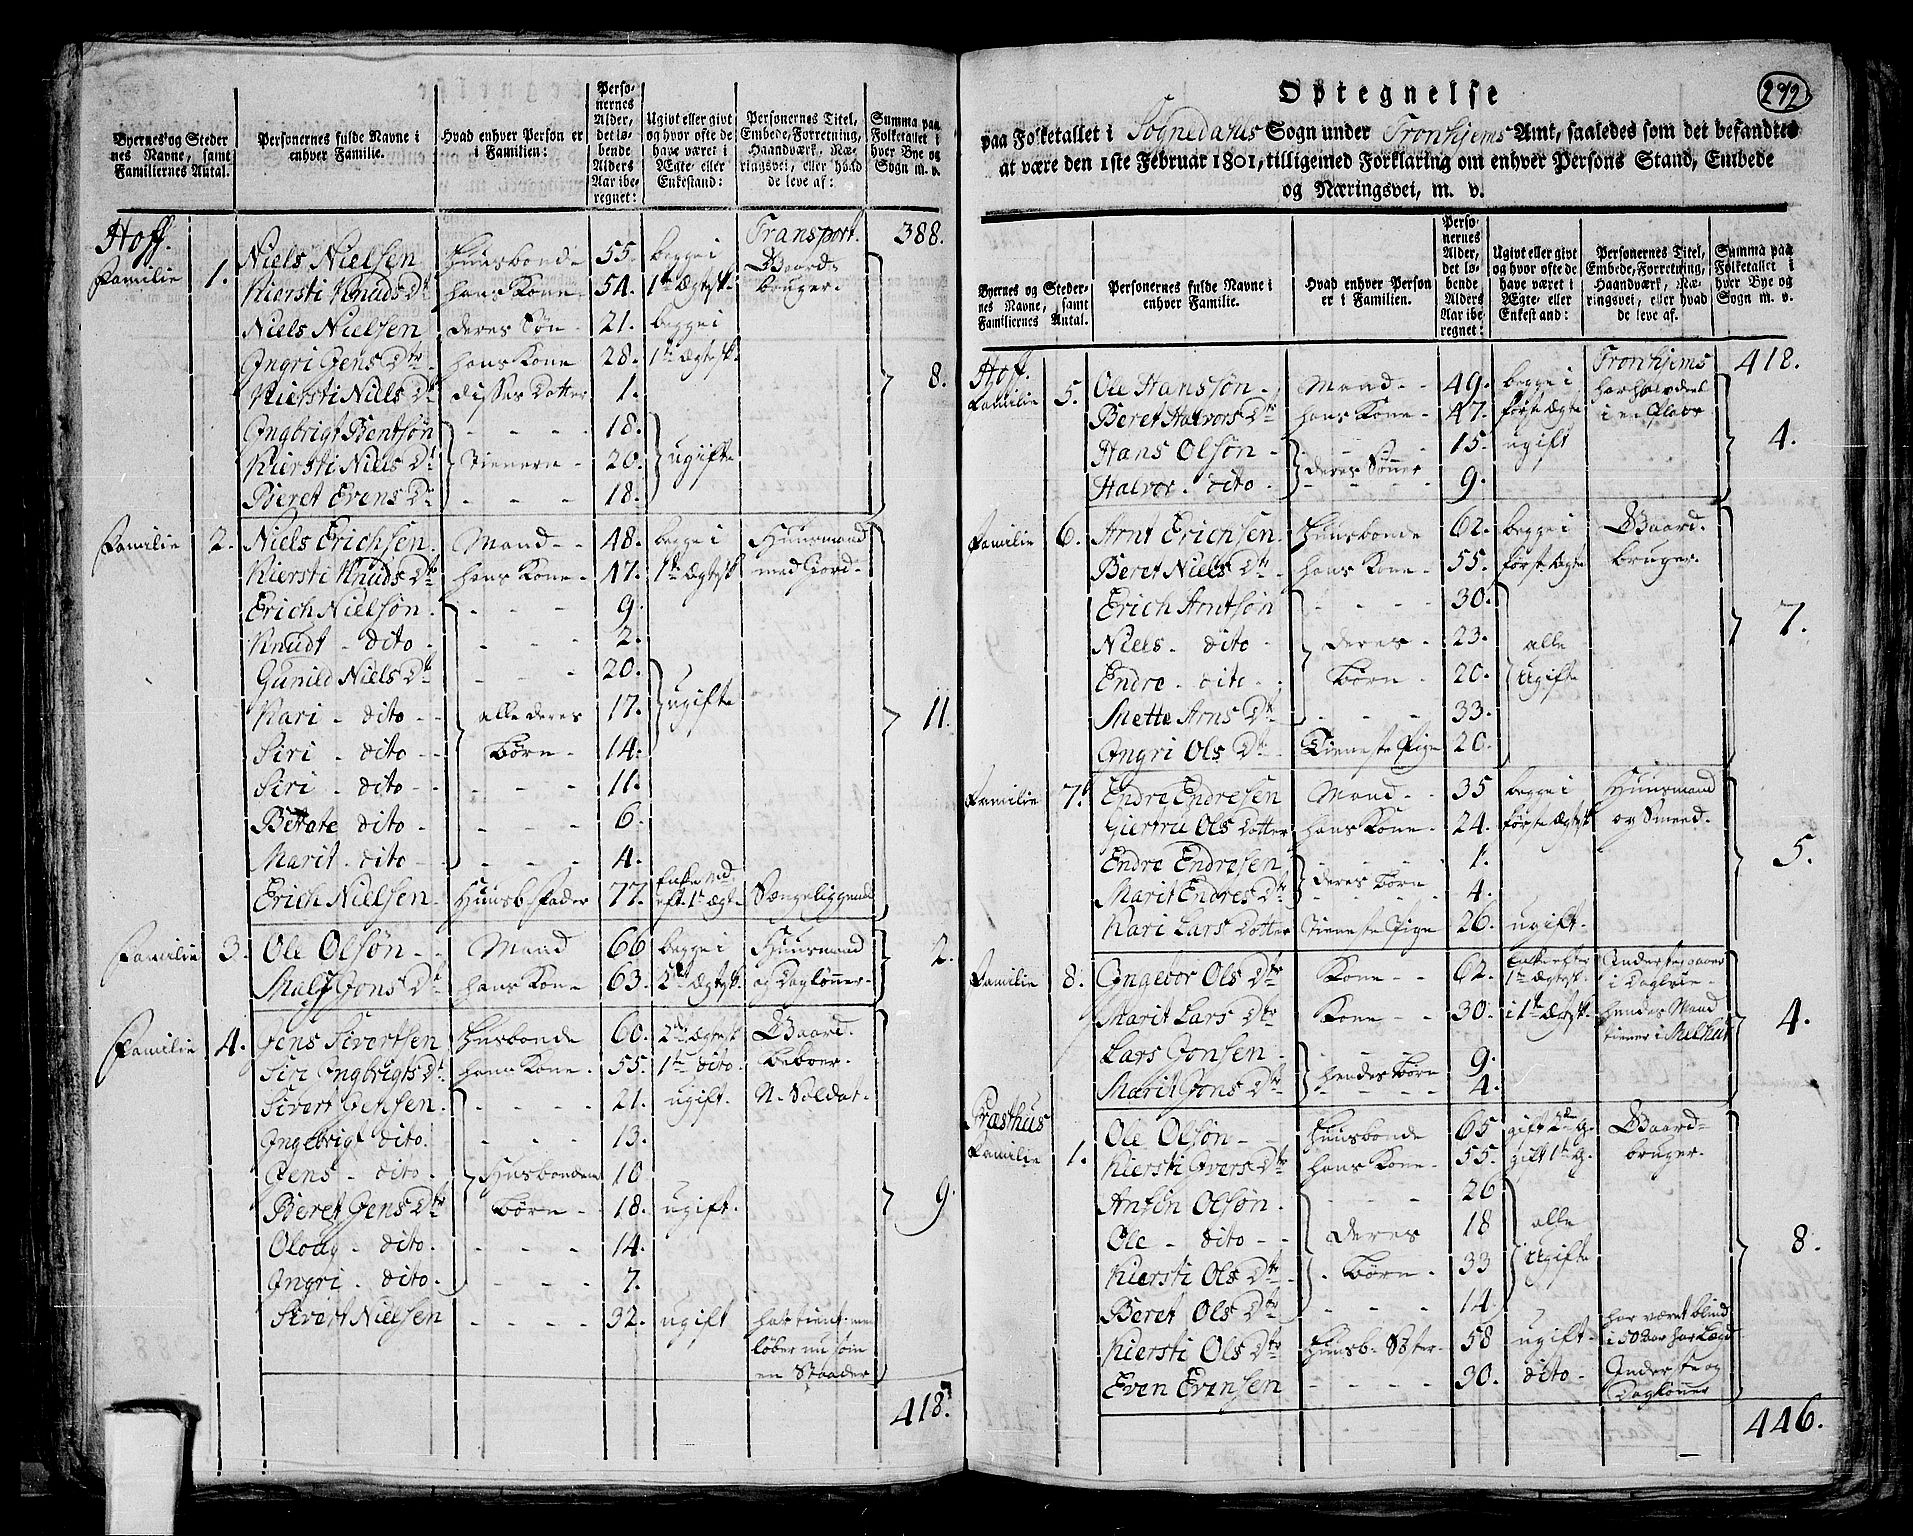 Byernes og Steder
nes Navne, samt
Familiernes Antal.
Personernes fulde Navne i
enhver Familie.
Hvad enhver Person er
i Familien:
Perso-
nernes
Alder,
det lø-
bende
Alders
Aar ibe-
regnet:
Ugivt eller givt
og hvor ofte de
have været i
Ægte- eller
Enkestand:
Personernes Titel,
Embede, Forretning,
Haandværk, Næ-
ringsvei, eller hvad
de leve af:
Summa paa
Folketallet i
hver Bye og
Sogn m. v.
Hoff. Transport. 388.
Familie 1. Niels Nielsen Huusbonde 55. begge i Gaard-
Kiersti Knuds Dr hans Kone 54. 1te Ægtesk. bruger.
Niels Nielsen deres Søn 21. begge i
Ingri Jens Dtr. hans Kone 28. 1te Ægtesk.
Kiersti Niels Dr disses Dotter 1. 8.
Ingbrigt Bentsøn - - - - 18.
Kiersti Niels Dr Tienere 20. ugifte
Beret Evens Dr - - - 18.
Familie 2. Niels Erichsen. Mand 48. begge i Huusmand
Kiersti Knuds Dr hans Kone 47. 1te Ægtesk med Jord
Erich Nielsøn - - - 9.
Knudt - dito - - - - 2.
Gunild Niels Dr - - - 20.
Kari - dito - alle deres 17. ugifte 11.
Siri - dito - Børn 14.
Siri - dito - - - - 11.
dito - - - - 6.
Marit - dito - - - 4.
Erich Nielsen. Huusb. Fader 77. eft. 1te Ægt. Sængeliggende
Familie 3. Ole Olsøn Mand 66 begge i Huusmand 2.
Jons Dr hans Kone 63. Ægtesk. og Dagløner
Familie 4. Jens Sivertsen Husbonde 60. 2det Ægtesk Gaard-
Siri Ingbrigts Dr. hans Kone 55. 1te dito. beboer.
Sivert Jensen - - - - 21. ugift. N. Soldat.
Ingebrigt dito. - - - 13.
Jens - dito Husbondens 10
Beret Jens Dtr Børn 18. ugift. 9.
Oloug - dito. - - - 14.
Ingri - dito. - - - 7.
Sivert Nielsen - - - - 32. ugift har tient, men
løber nu som
en Staader
418.
292
Optegnelse
paa Folketallet i Sognedahls Sogn under Tronhjems Amt, saaledes som det befandtes
at være den 1ste Februar 1801, tilligemed Forklaring om enhver Persons Stand, Embede
og Næringsvei, m. v.
Byernes og Steder-
nes Navne, samt
Familiernes Antal.
Personernes fulde Navne i
enhver Familie.
Hvad enhver Person
er i Familien.
Perso-
nernes
Alder,
det lø-
bende
Alders
Aar ibe-
regnet:
Ugivt eller givt
og hvor ofte de
have været i
Ægte- eller
Enkestand:
Personernes Titel,
Embede, Forretning,
Haandværk, Næ-
ringsvei, eller hvad
de leve af.
Summa paa
Folketallet i
hver Bye og
Sogn m. v.
Hoff. Tronhjems 418.
Familie 5. Ole Hanssøn Mand 49. begge i
Beret Halvors Dr hans Kone 47. første Ægte
Hans Olsøn 15. ugift 4.
Halvor - dito - deres Sønner 9.
Familie 6. Arnt Erichsen. Huusbonde 62. begge i Gaard-
Beret Niels Dtr hans Kone 55. første Ægte bruger.
Erich Arntsøn - - - - 30.
Niels - dito - deres 23. alle 7.
Endre - dito - Børn 20. ugifte
Mette Arns Dr - - - 33.
Ingri Ols Dtr Tieneste Pige 20.
Familie 7. Endre Endresen Mand 35 begge i Huusmand
Giertru Ols Dotter hans Kone 24. første Ægtesk og Smeed.
Endre Endresen - - - - 1. 5.
Marit Endres Dr deres Børn 4.
Kari Lars Dotter Tieneste Pige 26. ugift.
Familie 8. Ingebor Ols Dtr Kone 62. Enke efter
1te Ægtesk. i Dagleie
Marit Lars Dtr Kone 30. i 1te Ægtesk. hendes Mand 4.
tiener i Melhus
Lars Jonsen hendes Børn 9.
Marit Jons Dr 4.
Præsthus
Familie 1. Ole Olsøn Huusbonde 65 gift 2den G. Gaard-
Kiersti Ivers Dtr hans Kone 55. gift 1te G. bruger.
Olsøn. - - - 26
Ole - dito - deres 18 alle 8.
Kiersti Ols Dtr Børn 33 ugifte
Beret Ols Dtr - - - 14.
Kiersti Ols Dtr Huusb. Søster 58 ugift har været blind
i 50 Aar har Lægd
Even Evensen - - - - 30. dito Inderste og
Dagløner
446.